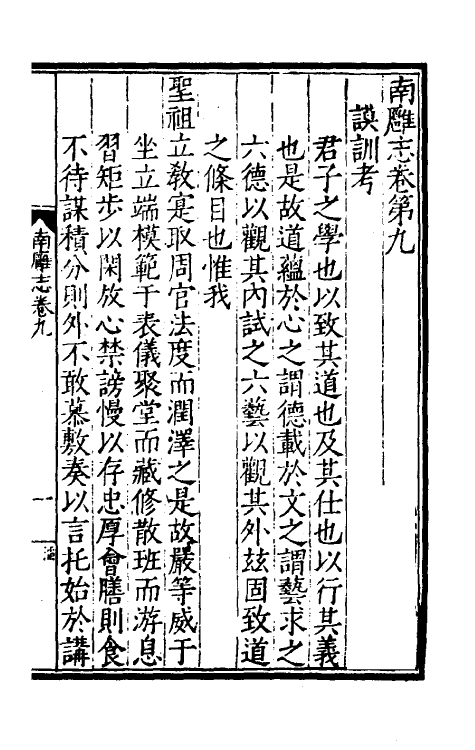 南雝志卷第九
謨訓考
君子之學也以致其道也及其仕也以行其義
也是故道蘊於心之謂德載於文之謂藝求之
六德以觀其內試之六藝以觀其外玆固致道
之條目也惟我
聖祖立敎寔取周官法度而潤澤之是故嚴等威于
坐立端模範于表儀聚堂而藏修散班而游息
習矩步以閑放心禁謗慢以存忠厚會膳則食
不待謀積分則外不敢慕敷奏以言托始於講
南雝志卷九
一